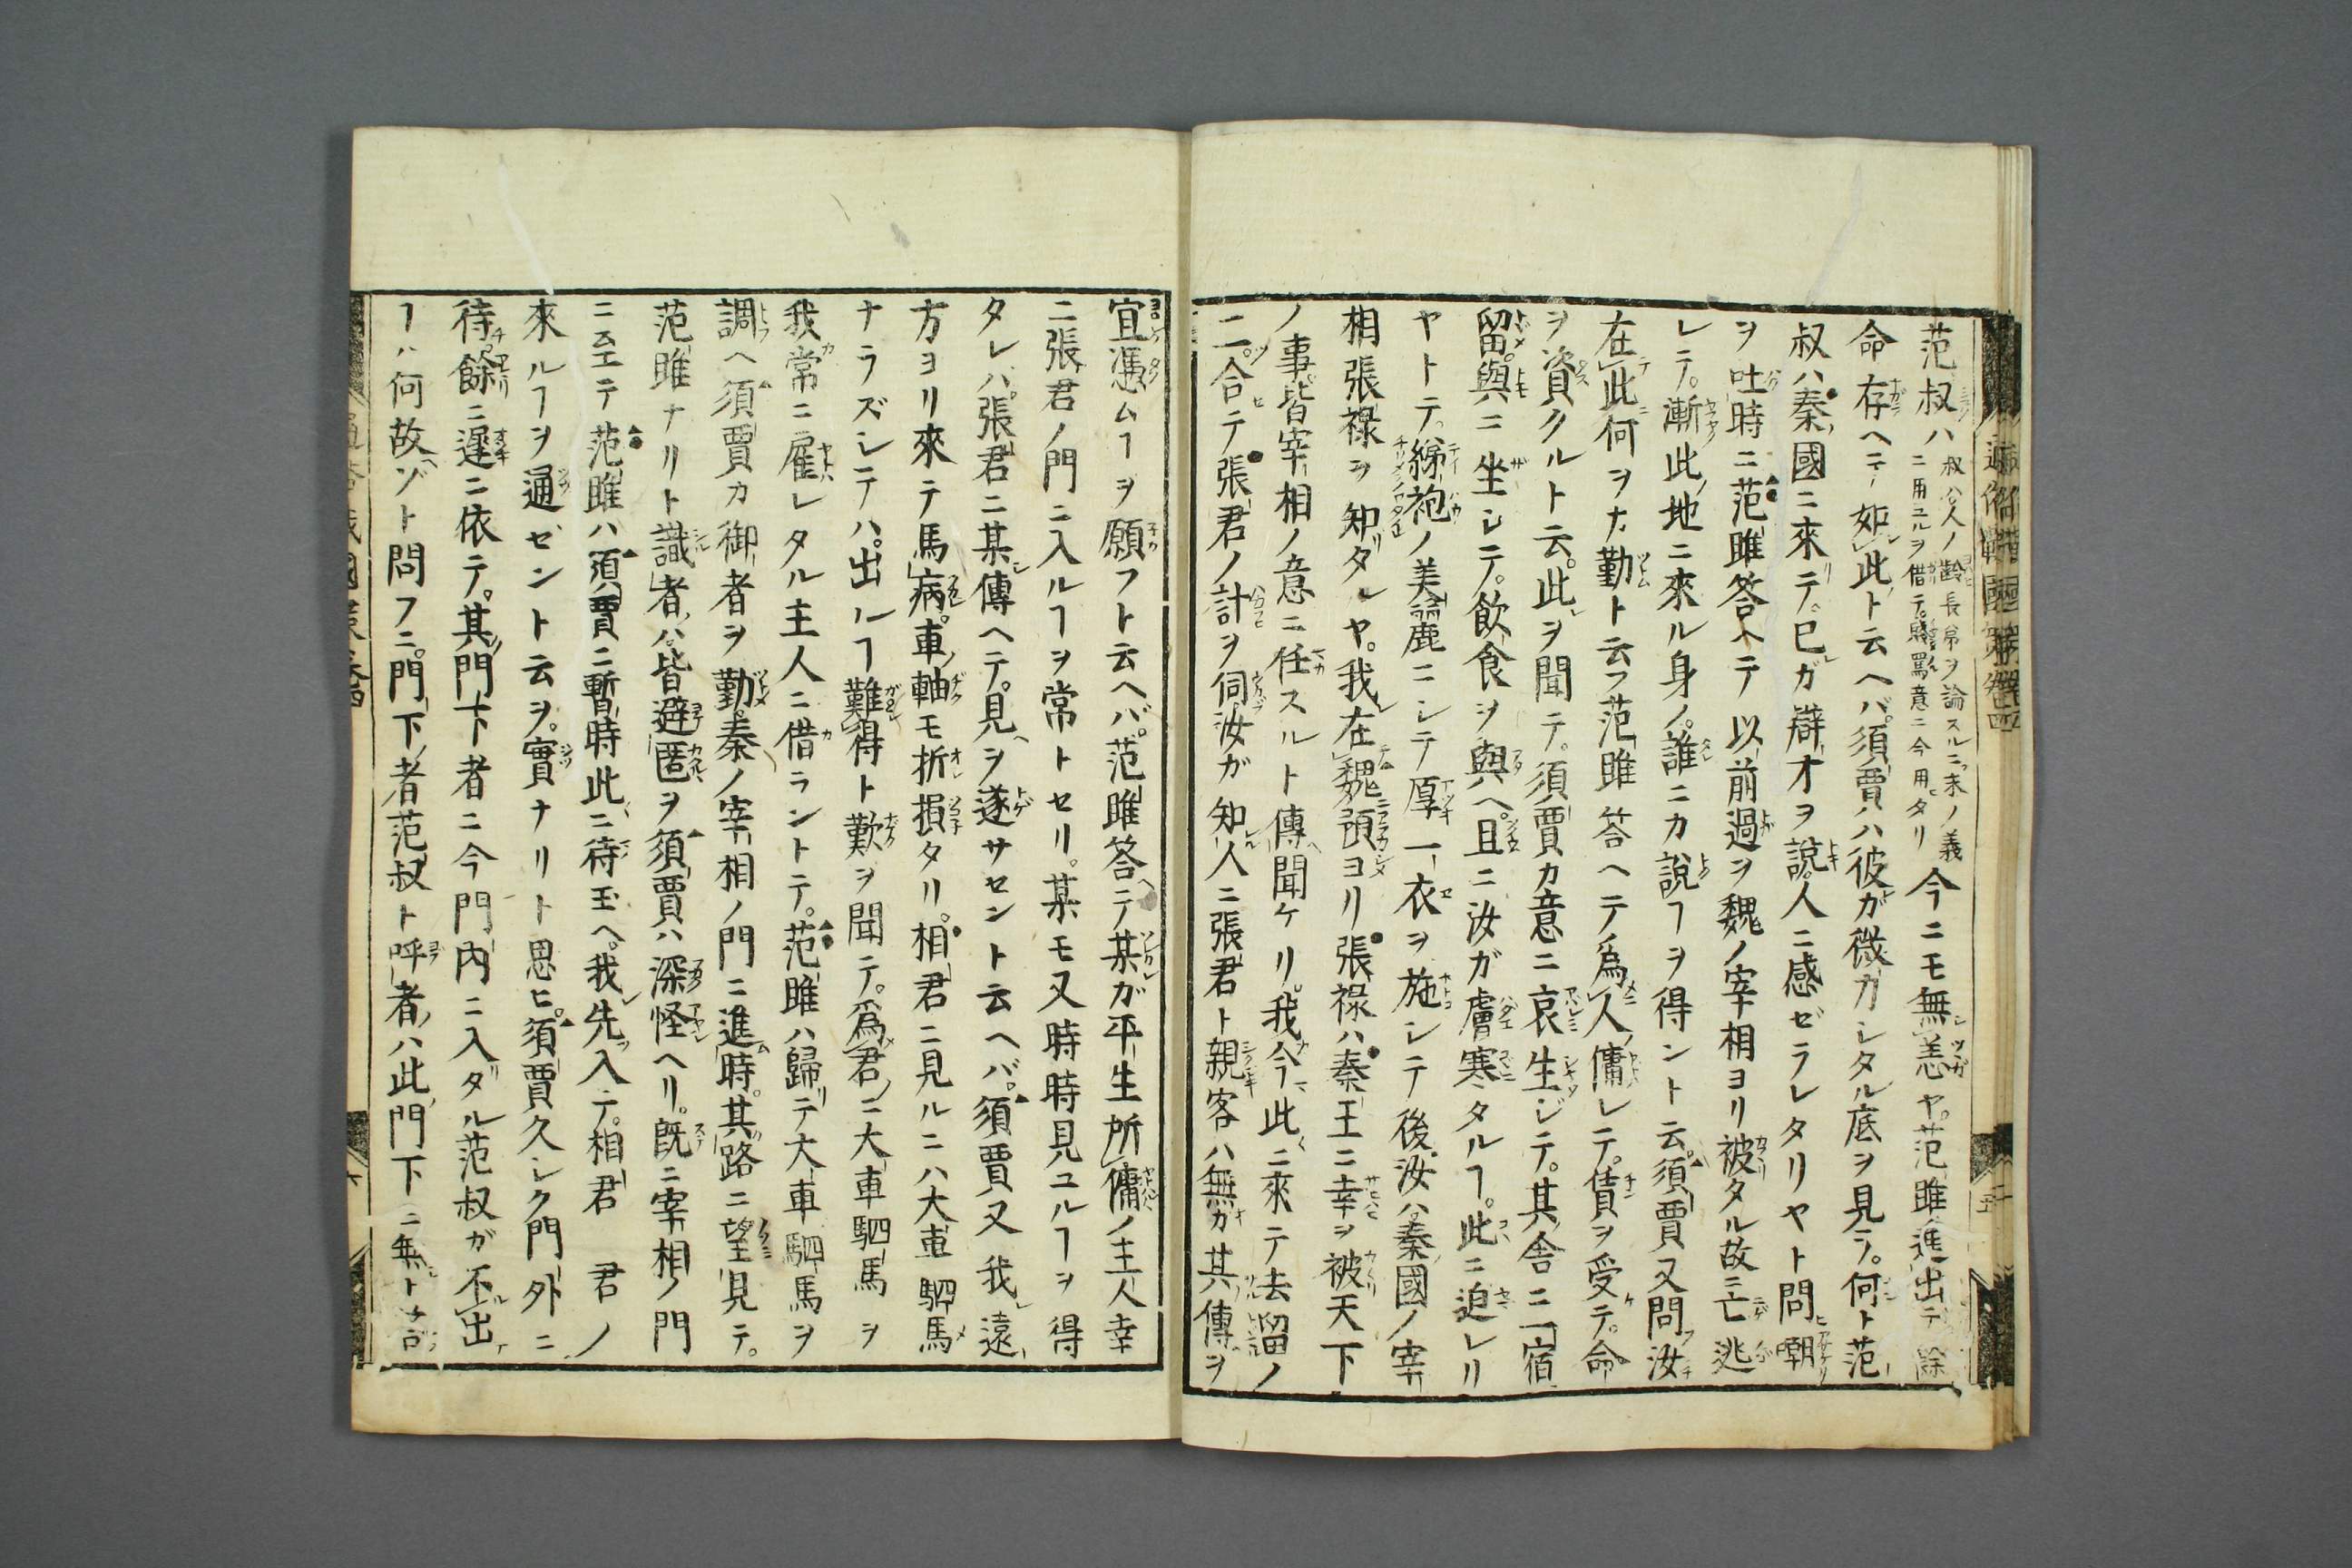 范叔ハ叔ハ人ノ齢長弟ヲ論スルニ末ノ義ニ用ユルヲ借テ罵意ニ今用タリ今ニモ無恙ヤ范雎進出テ
命存ヘテ如此ト云ヘバ。須賈ハ彼ガ微カシタル底ヲ見テ。何ト范
叔ハ秦國ニ來テ。已ガ辯才ヲ說。人ニ感ゼラレタリヤト問嘲
ヲ吐時ニ范雎答ヘテ以前過ヲ魏ノ宰相ヨリ被タル故ニ亡逃
レテ。漸此地ニ來ル身ノ。誰ニカ說ヿヲ得ント云。須賈又問汝
在此何ヲカ勤ト云フ范雎答ヘテ爲人傭レテ。賃ヲ受テ。命
ヲ資クルト云。此ヲ聞テ。須賈カ意ニ哀生ジテ。其舎ニ一宿
留。與ニ坐シテ。飲食ヲ與ヘ。且ニ汝ガ膚寒タルヿ。此ニ迫レリ
ヤトテ。綈袍ノ美麗ニシテ厚一衣ヲ施シテ後。汝ハ秦國ノ宰
相張祿ヲ知ダルヤ。我在魏頭ヨリ張祿ハ秦王ニ幸ヲ被天下
ノ事。皆宰相ノ意ニ任スルト傳聞ケリ。我今此ニ來テ去留ノ
二。合テ張君ノ計ヲ伺汝ガ知人ニ張君ト親客ハ無カ其傳ヲ
宜憑ムヿヲ願フト云ヘバ。范雎答テ某ガ平生所傭ノ主人幸
ニ張君ノ門ニ入ルヿヲ常トセリ。某モ又時時見ユルヿヲ得
タレハ。張君ニ某傳ヘテ。見ヲ遂サセント云ヘバ。須賈又我遠
方ヨリ來テ馬病。車軸モ折損タリ。相君ニ見ルニハ大車駟馬
ナラズシテハ。出ルヿ難得ト歎ヲ聞テ。爲君ニ大車駟馬ヲ
我常ニ雇レタル主人ニ借ラントテ。范雎ハ歸テ大車駟馬ヲ
調ヘ須賈カ御者ヲ勤。秦ノ宰相ノ門ニ進時。其路ニ望見テ。
范雎ナリト識者ハ。皆避匿ヲ須賈ハ深怪ヘリ。既ニ宰相ノ門
ニ至テ范雎ハ須賈ニ暫時此ニ待玉ヘ。我先入テ。相君 君ノ
來ルヿヲ通ゼント云ヲ。實ナリト思ヒ。須賈久シク門外ニ
待。餘ニ遲ニ依テ。其門下者ニ今門內ニ入タル范叔ガ不出
ヿハ何故ゾト問フニ。門下者范叔ト呼者ハ此門下ニ無ト